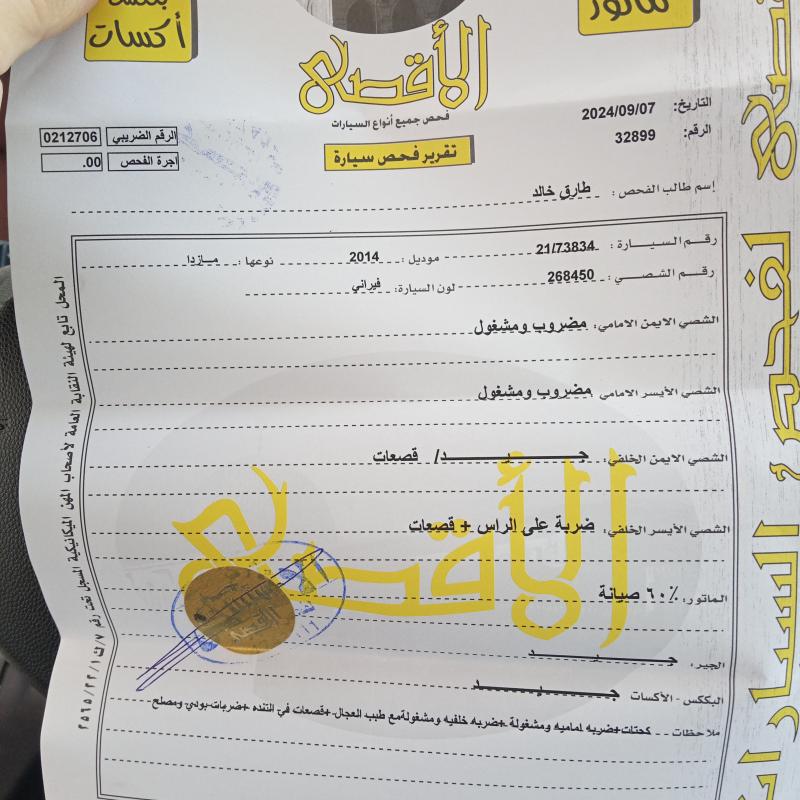 ماتور
أكسات
الأقصى
فحص جميع أنواع السيارات
تقرير فحص سيارة
التاريخ: 2024/09/07
الرقم: 32899
الرقم الضريبي 0212706
اجرة الفحص .00
إسم طالب الفحص: طارق خالد
رقم السيارة: 21/73834 موديل: 2014 نوعها: مازدا
رقم الشصي: 268450 لون السيارة: فيراني
الشصي الايمن الامامي: مضروب ومشغول
الشصي الأيسر الامامي مضروب ومشغول
الشصي الايمن الخلفي: جيد/ قصعات
الشصي الأيسر الخلفي: ضربة على الراس + قصعات
الماتور: ٦٠٪ صيانة
الجير: جيد
البككس - الأكسات جيد
ملاحظات -- كحتات+ضربه اماميه ومشغولة +ضربه خلفيه ومشغولةمع طبب العجال +قصعات في التنده +ضربات بودي ومصلح
المحل تابع لهيئة النقابة العامة لأصحاب المهن الميكانيكية المسجل تحت رقم
الأقصى
لفحص السيارات